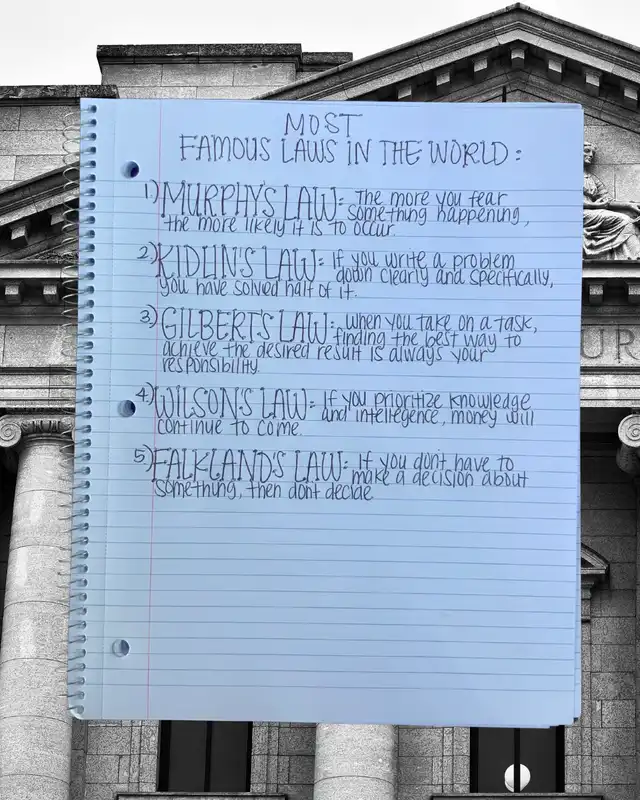 MOST
FAMOUS LAWS IN THE WORLD:
1) MURPHY'S LAW: The more you fear
something happening,
the more likely it is to occur.
2) KIDLIN'S LAW: If you write a problem
down clearly and specifically,
you have solved half of it.
3) GILBERT'S LAW: When you take on a task,
finding the best way to
achieve the desired result is always your
responsibility.
4) WILSON'S LAW: If you prioritize knowledge
and intellegence, money will
continue to come.
5) FALKLAND'S LAW: If you don't have to
make a decision about
something, then dont decide
UR